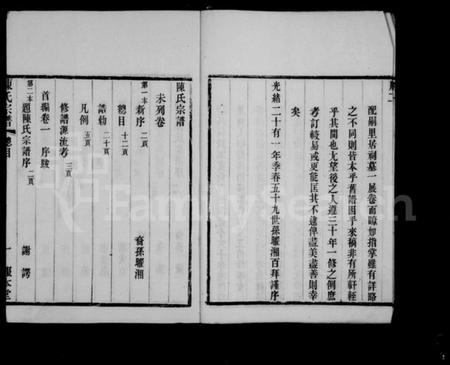 配嗣里居祠墓一展卷而瞭如指掌雖有詳略
之不同則皆本乎舊譜因乎來稿非有所軒輊
乎其間也尤望後之人遵三十年一修之例庶
考訂較易或更能匡其不逮俾盡美盡善則幸
矣
光緒二十有一年季春五十九世孫耀湘百拜謹序
陳氏宗譜
未列卷
第一本 新序 二頁 裔孫耀湘
總目 十二頁
譜勅 二十頁
凡例 五頁
修譜源流考 三頁
首編卷一 序跋
第二本 題陳氏宗譜序 二頁 謝諤
陳氏宗譜 總目 一
FamilySearch